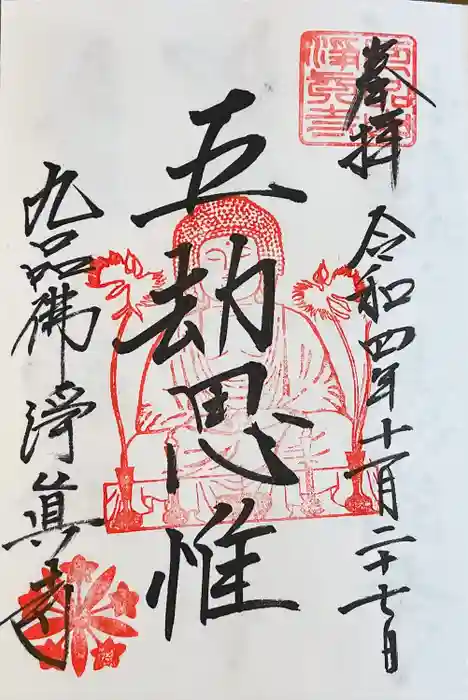 奉拝 令和四年十一月二十七日
五劫思惟
九品佛 淨眞寺